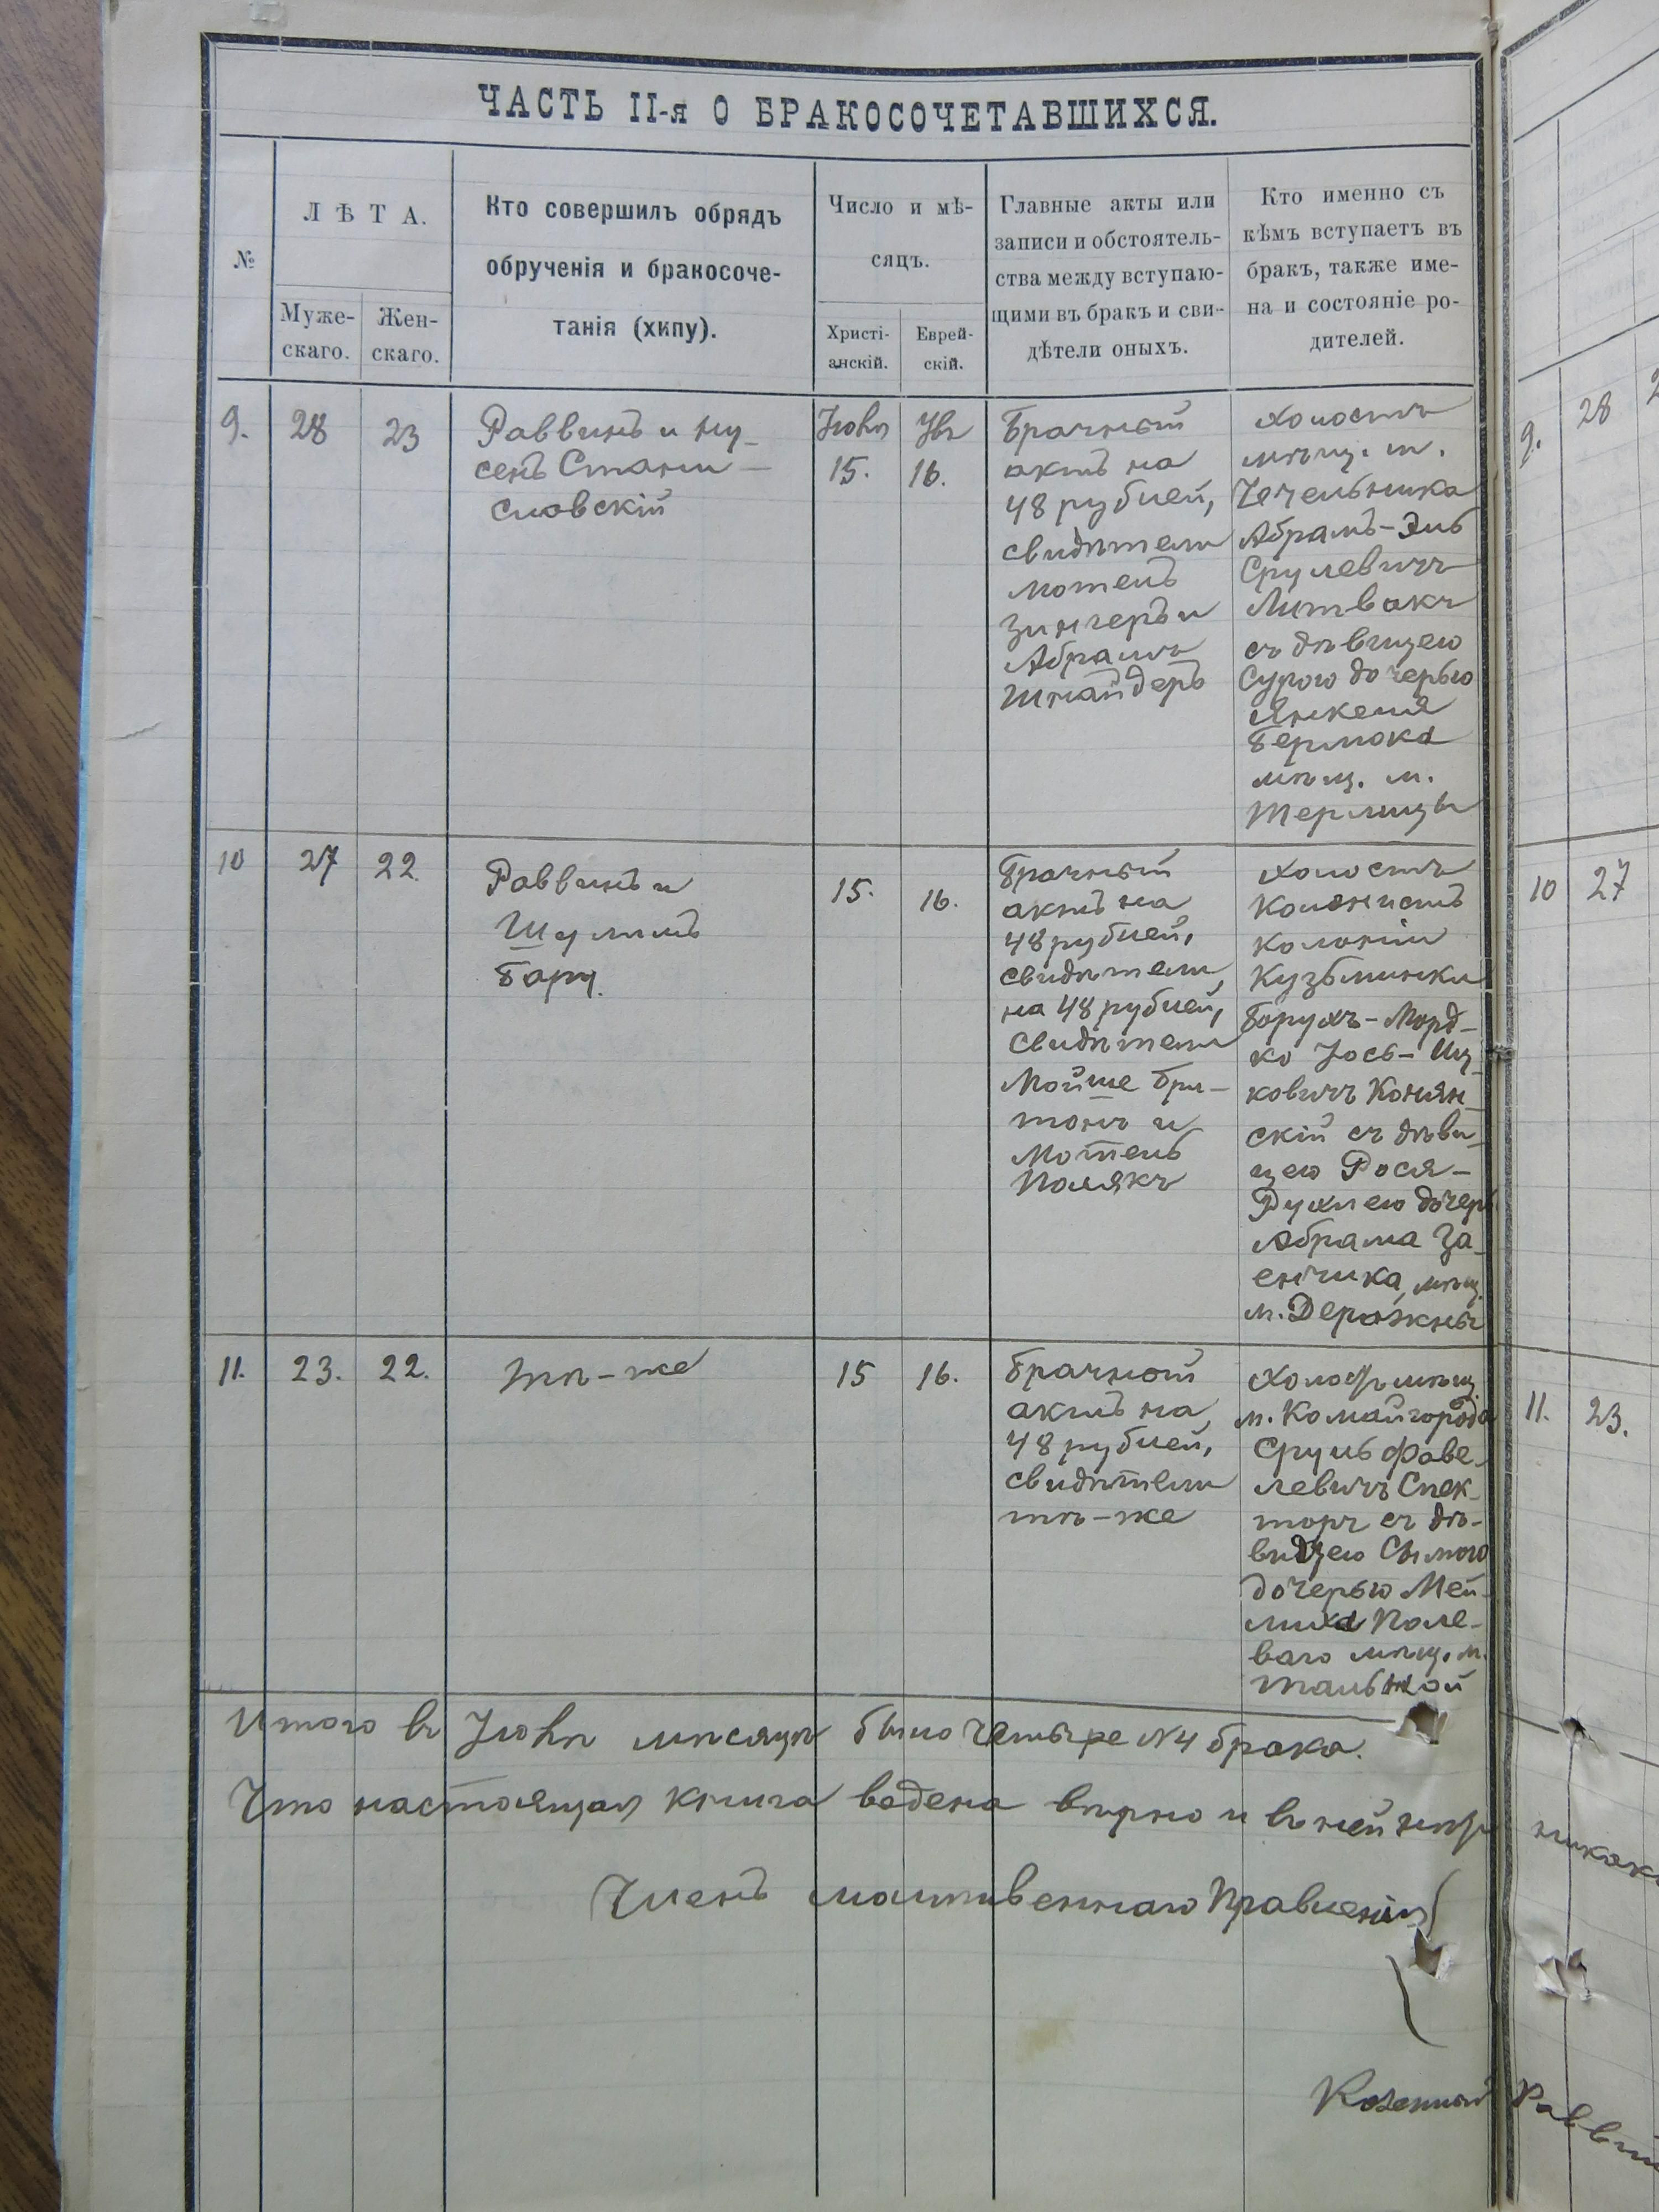 ЧАСТЬ II-я О БРАКОСОЧЕТАВШИХСЯ.
№
ЛѢТА.
Муже-
скаго.
Жен-
скаго.
Кто совершилъ обрядъ
обрученія и бракосоче-
танія (хипу).
Число и мѣ-
сяцъ.
Христі-
анскій.
Еврей-
скій.
Главные акты или
записи и обстоятель-
ства между вступаю-
щими въ бракъ и сви-
дѣтели оныхъ.
Кто именно съ
кѣмъ вступаетъ въ
бракъ, также име-
на и состояніе ро-
дителей.
9.
28
23
Раввинъ и Ну-
сенъ Стани-
словскій
Іюня
15.
16.
Брачный
актъ на
48 рублей,
свидѣтели
Мотель
Зингеръ и
Абрамъ
Шнайдеръ
Холостъ
мѣщ. м.
Чечельника
Абрамъ-Эль
Срулевичъ
Литвакъ
съ дѣвицею
Сурою дочерью
Янкеля
мѣщ. м.
10
27
22.
Раввинъ и
Шулимъ
15.
16.
Брачный
актъ на
48 рублей,
свидѣтели,
на 48 рублей,
свидѣтели
Мойше Бри-
тонъ и
Мотель
Полякъ
Холостъ
колонистъ
колоніи
Кузьминки
Борухъ-Морд-
ко Іось-Иц-
ковичъ Конян-
скій съ дѣви-
цею Рося-
Рухлею дочерь
Абрама За-
енчика, мѣщ.
м. Деражны
11.
23.
22.
Тѣ-же
15
16.
Брачный
актъ на
48 рублей,
свидѣтели
тѣ-же
Холостъ мѣщ.
м. Комайгорода
Сруль Фаве-
левичъ Спек-
торъ съ дѣ-
вицею Сымою
дочерью Мей-
лиха Поле-
ваго мѣщ. м.
Тальной
Итого въ Іюнѣ мѣсяцѣ было четыре №4 брака.
Что настоящая книга ведена вѣрно и въ ней нѣтъ
Членъ молитвеннаго Правленія
Казенный Раввин
9.
28
10
27
11.
23.